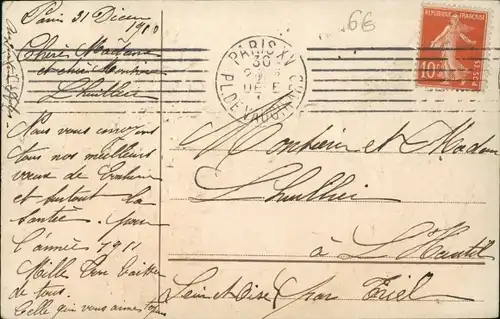 Paris 31 Décem
1910
Chère Madame
et cher Monsieur
Lhuillier
Nous vous envoyons
tous nos meilleurs
vœux de bonheur
et surtout la
santée. pour
l'année 1911
Mille bon baiser
de tous.
Celle qui vous aime
6€
PARIS XV
30
DEE
PL. DE VAUGIRARD
REPUBLIQUE FRANÇAISE
10c
POSTES
Monsieur et Madame
Lhuillier
à L'Hautil
Seine et Oise par Triel